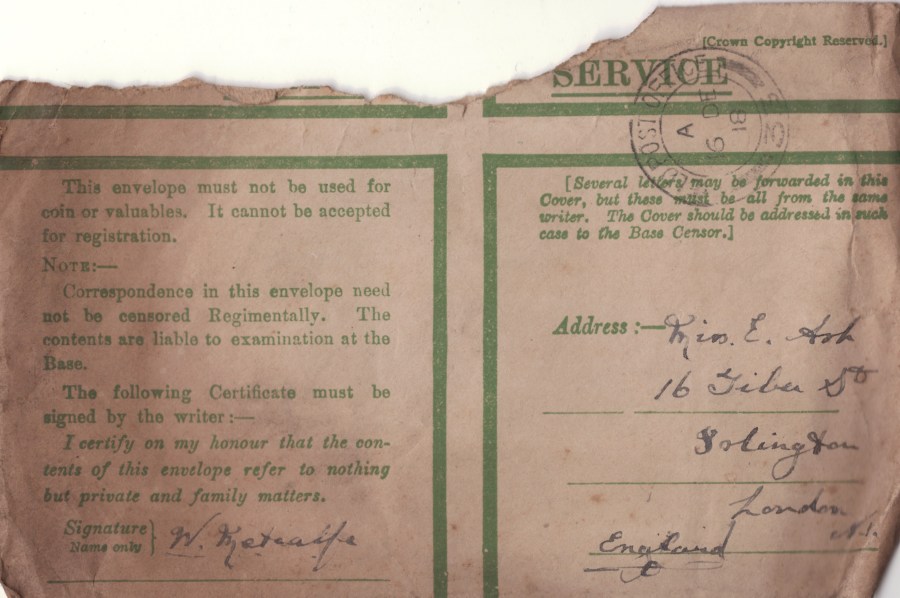 [Crown Copyright Reserved.]
SERVICE
POST OFFICE
A
16 DE
18
This envelope must not be used for
coin or valuables. It cannot be accepted
for registration.
NOTE:—
Correspondence in this envelope need
not be censored Regimentally. The
contents are liable to examination at the
Base.
The following Certificate must be
signed by the writer:—
I certify on my honour that the con-
tents of this envelope refer to nothing
but private and family matters.
Signature
Name only
W. Metcalfe
[Several letters may be forwarded in this
Cover, but these must be all from the same
writer. The Cover should be addressed in such
case to the Base Censor.]
Address:— Miss. E. Ash
16 Tiber St
Islington
London
N.1.
England